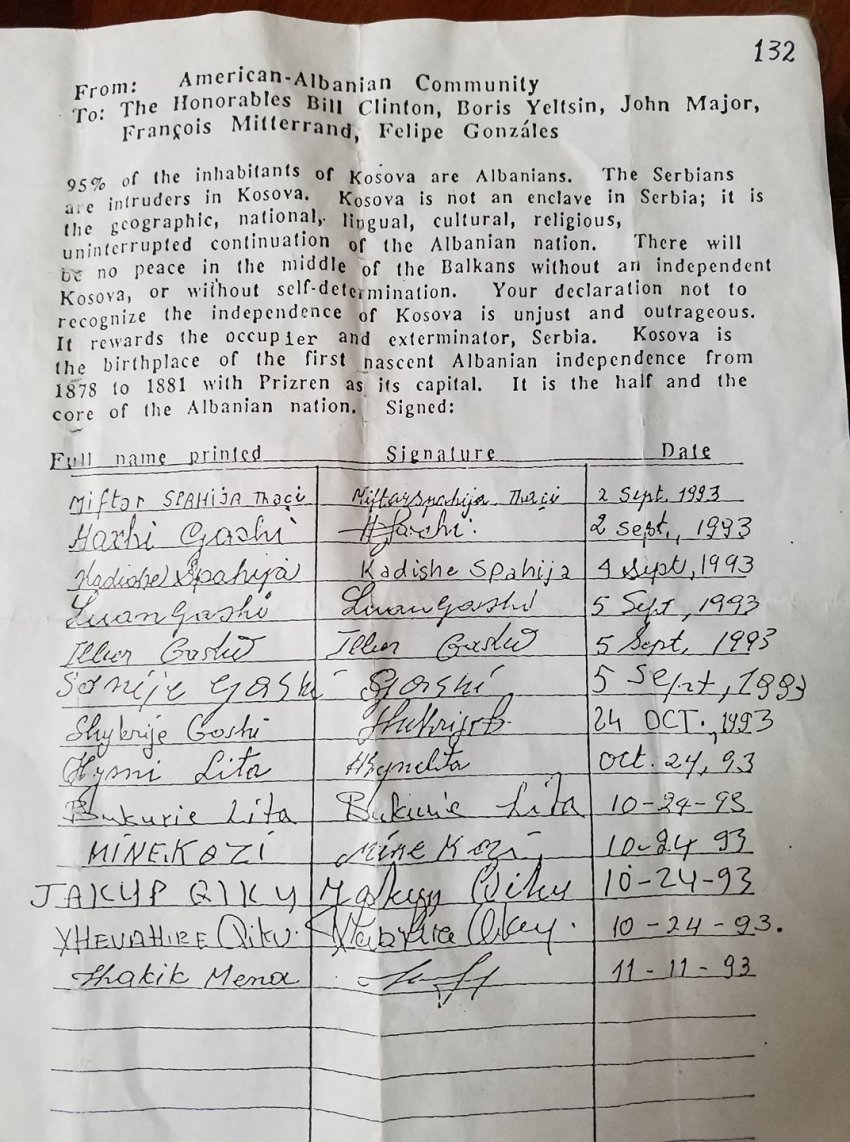 132
From: American-Albanian Community
To: The Honorables Bill Clinton, Boris Yeltsin, John Major,
François Mitterrand, Felipe Gonzáles
95% of the inhabitants of Kosova are Albanians. The Serbians
are intruders in Kosova. Kosova is not an enclave in Serbia; it is
the geographic, national, lingual, cultural, religious,
uninterrupted continuation of the Albanian nation. There will
be no peace in the middle of the Balkans without an independent
Kosova, or without self-determination. Your declaration not to
recognize the independence of Kosova is unjust and outrageous.
It rewards the occupier and exterminator, Serbia. Kosova is
the birthplace of the first nascent Albanian independence from
1878 to 1881 with Prizren as its capital. It is the half and the
core of the Albanian nation. Signed:
Full name printed Signature Date
Miftar SPAHIJA Thaçi Miftar Spahija Thaçi 2 Sept. 1993
Haxhi Gashi 2 Sept., 1993
Kadishe Spahija Kadishe Spahija 4 Sept, 1993
Luan Gashi Luan Gashi 5 Sept, 1993
Gashi Gashi 5 Sept, 1993
Sanije Gashi SGashi 5 Sept, 1993
Shyhrije Gashi 24 OCT., 1993
Hysni Lita Oct. 24, 93
Bukurie Lita Bukurie Lita 10-24-93
MINE KAZI Mine Kazi 10-24 93
JAKUP QIKU Jakup Qiku 10-24-93
XHEVAHIRE Qiku 10-24-93.
Shakik Mena 11-11-93